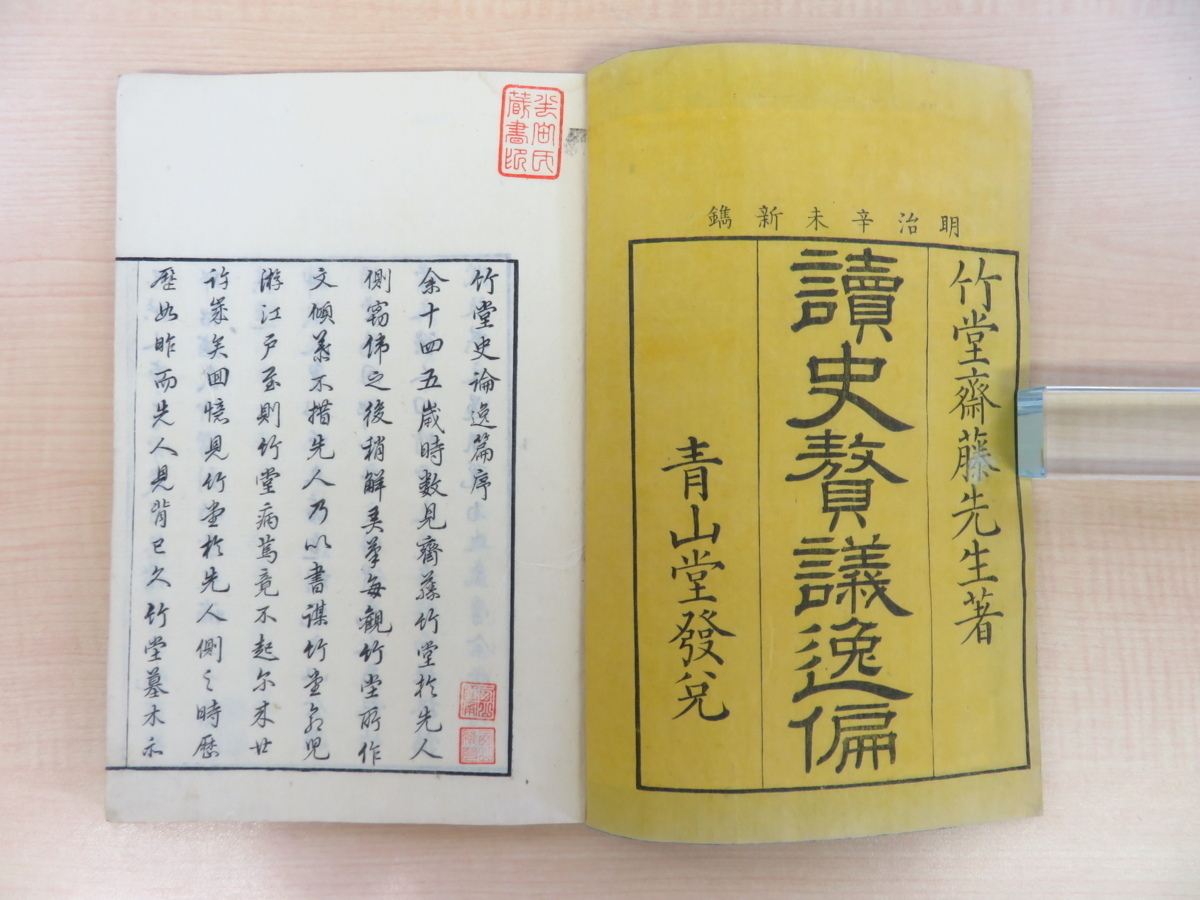 明治辛未新鐫
竹堂齋藤先生著
讀史贅議逸偏
青山堂發兌
竹堂史論逸篇序
余十四五歲時数見齋藤竹堂於先人
側竊偉之後稍解弄筆每觀竹堂所作
文傾慕不措先人乃以書謀竹堂命児
游江戸至則竹堂病篤竟不起尔来廿
許年矣回憶見竹堂於先人側之時歴
歴如昨而先人見背已久竹堂墓木亦
藏書印